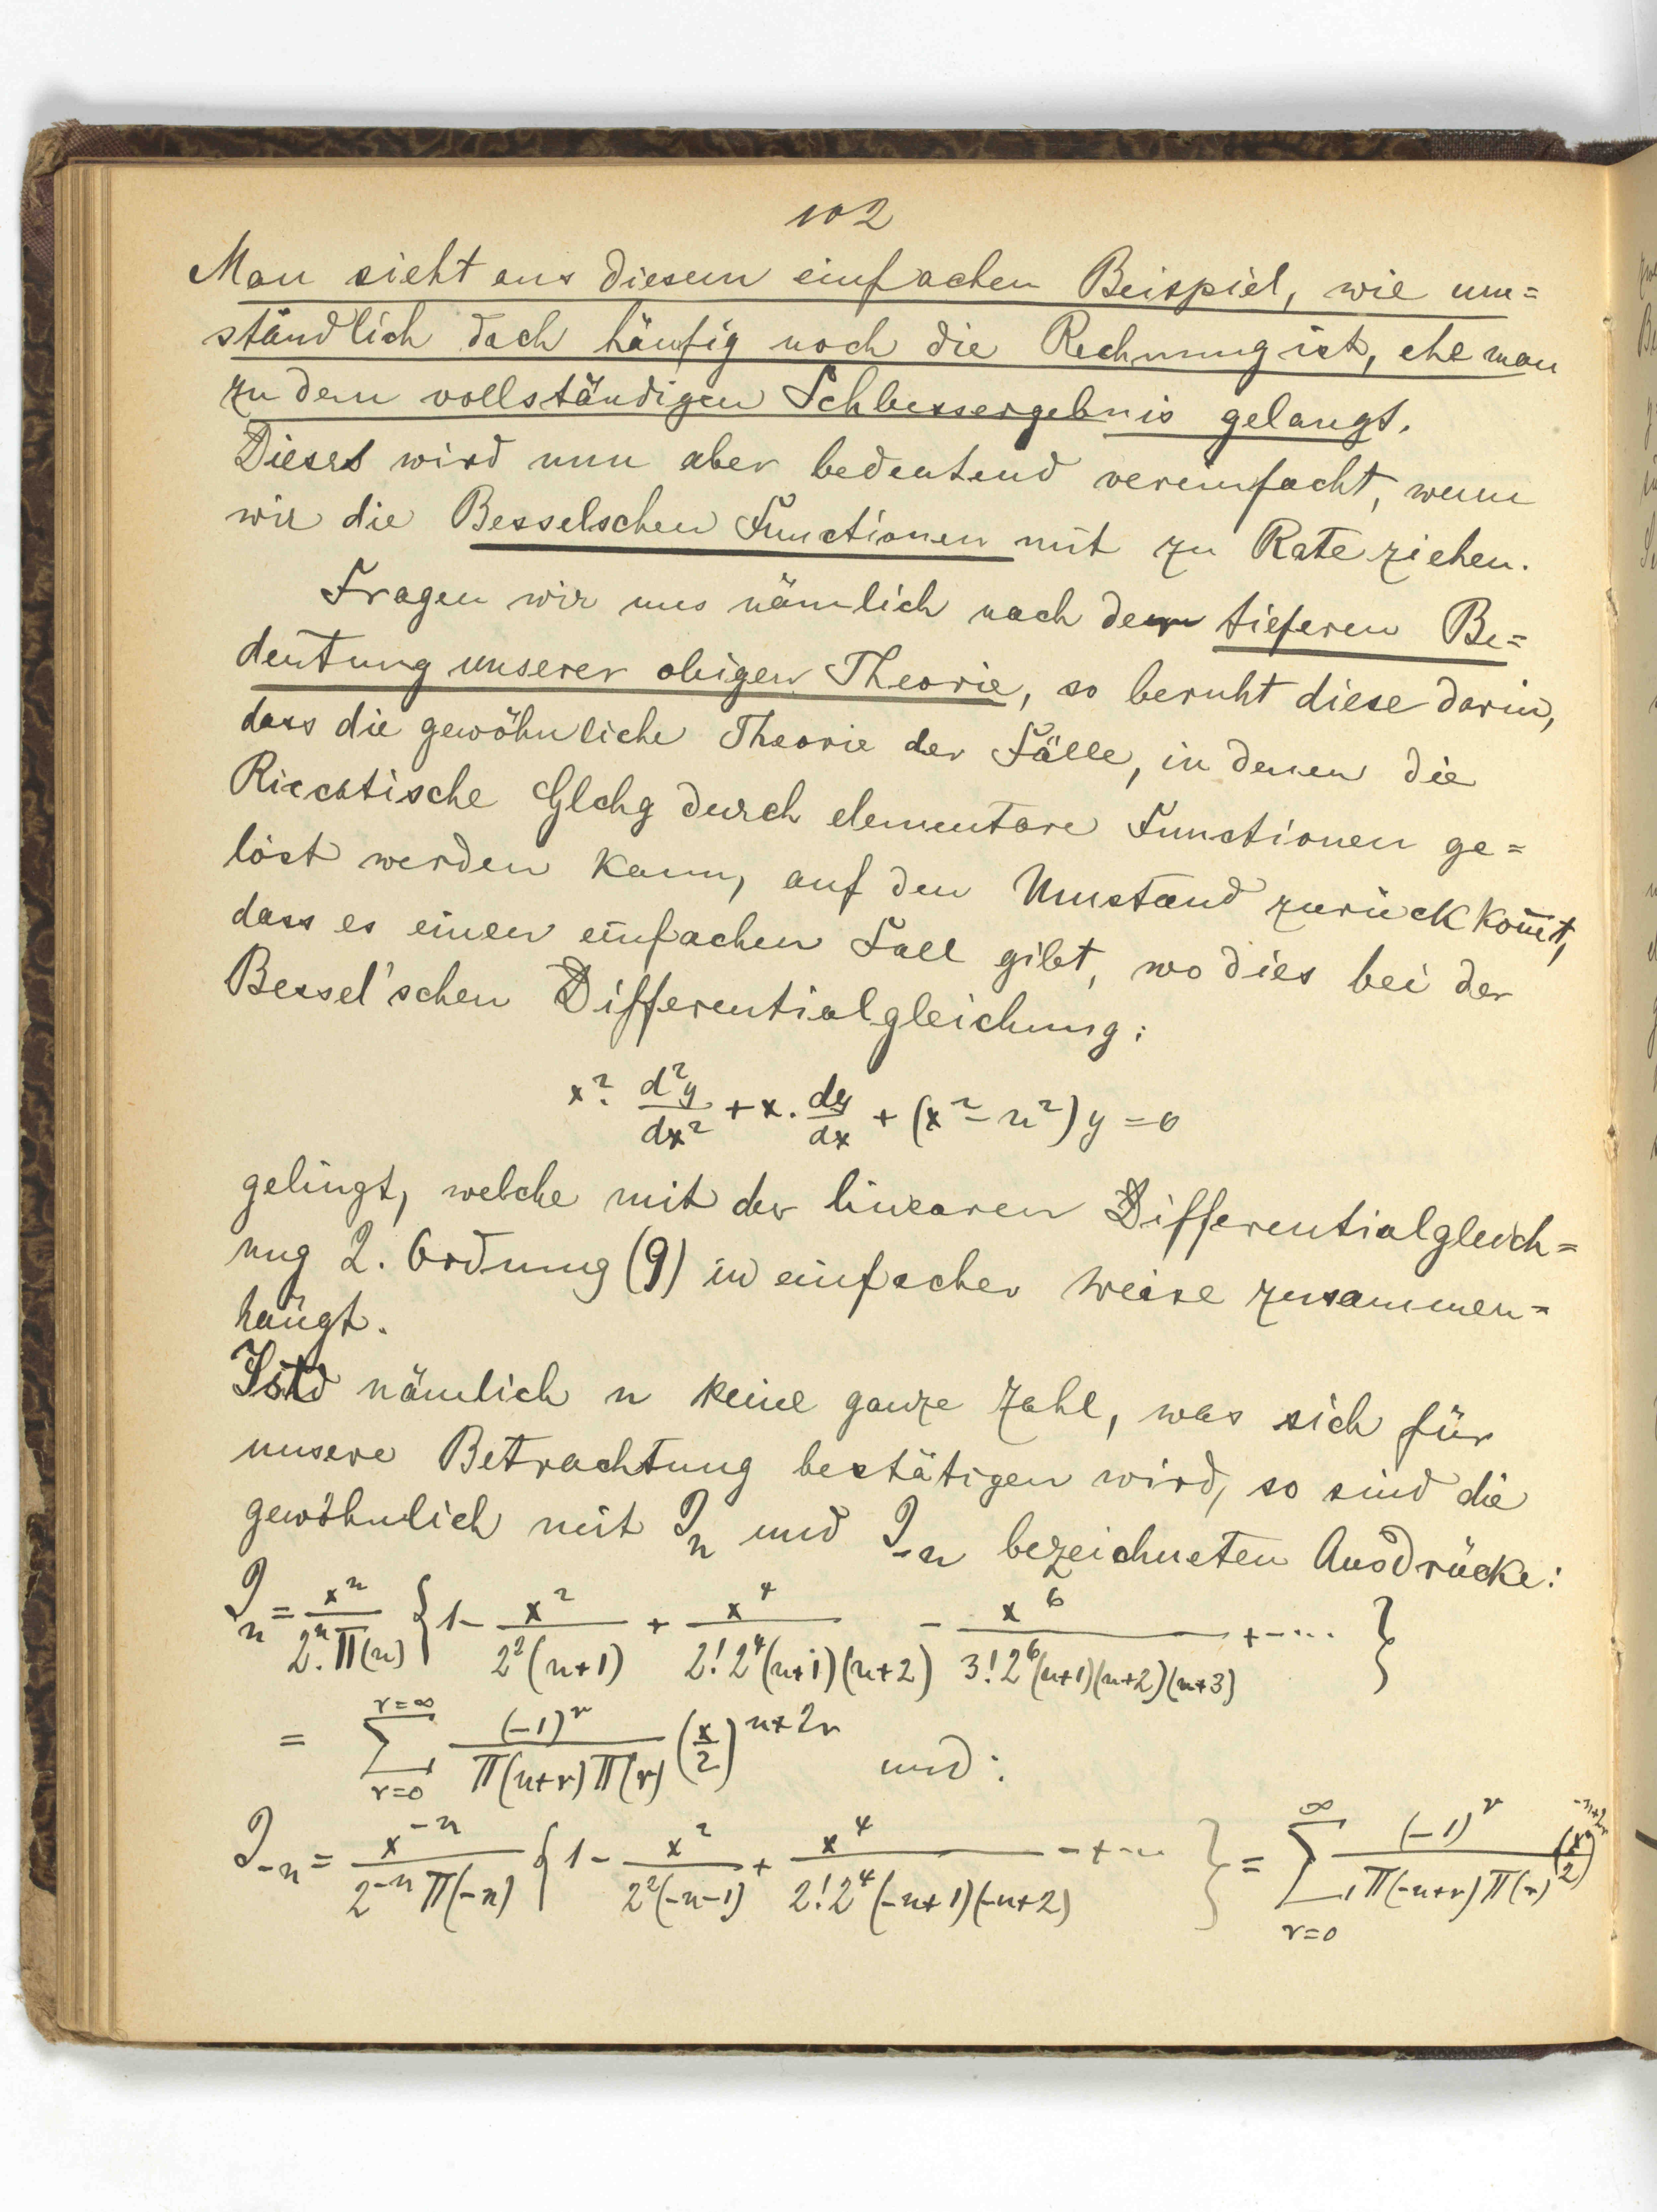 102
Man sieht aus diesem einfachen Beispiel, wie um=
ständlich doch häufig noch die Rechnung ist, ehe man
zu dem vollständigen Schlussergebnis gelangt.
Dieses wird nun aber bedeutend vereinfacht, wenn
wir die Besselschen Functionen mit zu Rate ziehen.
Fragen wir uns nämlich nach der tieferen Be=
deutung unserer obigen Theorie, so beruht diese darin,
dass die gewöhnliche Theorie der Fälle, in denen die
Riccatische Glchg durch elementare Functionen ge=
löst werden kann, auf den Umstand zurückkom̅t,
dass es einen einfachen Fall gibt, wo dies bei der
Bessel'schen Differentialgleichung:
x². d²y/dx² + x. dy/dx + (x² - n²) y = 0
gelingt, welche mit der linearen Differentialgleich=
ung 2. Ordnung (9) in einfacher Weise zusammen=
hängt.
Ist nämlich n keine ganze Zahl, was sich für
unsere Betrachtung bestätigen wird, so sind die
gewöhnlich mit J_n und J_-n bezeichneten Ausdrücke:
J_n = x^n/(2^n. Π(n)) {1 - x²/(2²(n+1)) + x⁴/(2! 2⁴(n+1)(n+2)) - x⁶/(3! 2⁶(n+1)(n+2)(n+3)) + -.... }
= Σ_{r=0}^{r=∞} (-1)^r/(Π(n+r) Π(r)) (x/2)^{n+2r} und:
J_-n = x^{-n}/(2^{-n} Π(-n)) {1 - x²/(2²(-n-1)) + x⁴/(2! 2⁴(-n+1)(-n+2)) - + -... } = Σ_{r=0}^{∞} (-1)^r/(Π(-n+r) Π(r)) (x/2)^{-n+2r}